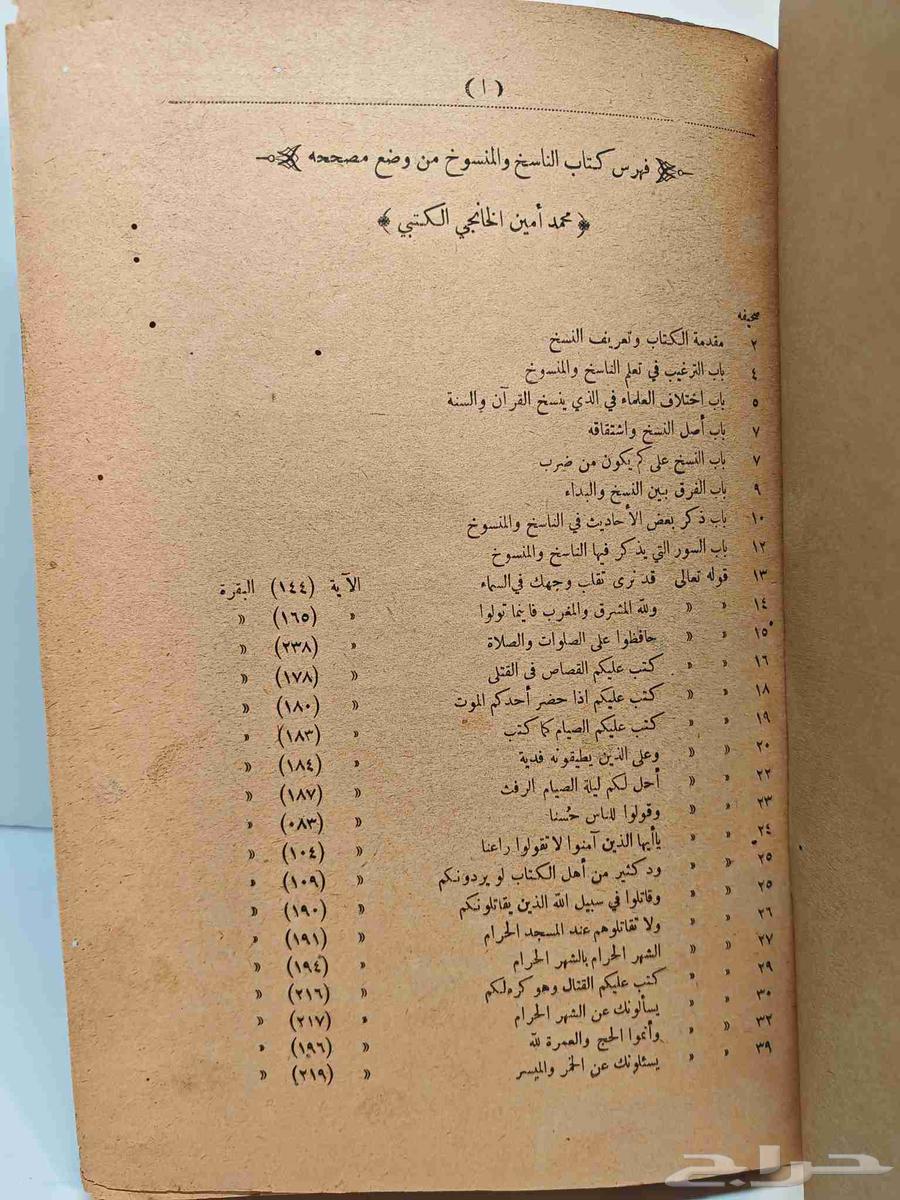 (١)
فهرس كتاب الناسخ والمنسوخ من وضع مصححه
محمد أمين الخانجي الكتبي
صحيفه
٢ مقدمة الكتاب وتعريف النسخ
٤ باب الترغيب في تعلم الناسخ والمنسوخ
٥ باب اختلاف العلماء في الذي ينسخ القرآن والسنة
٧ باب أصل النسخ واشتقاقه
٧ باب النسخ على كم يكون من ضرب
٩ باب الفرق بين النسخ والبداء
١٠ باب ذكر بعض الأحاديث في الناسخ والمنسوخ
١٢ باب السور التي يذكر فيها الناسخ والمنسوخ
١٣ قوله تعالى قد نرى تقلب وجهك في السماء الآية (١٤٤) البقرة
١٤ » » ولله المشرق والمغرب فاينما تولوا » (١٦٥) »
١٥ » » حافظوا على الصلوات والصلاة » (٢٣٨) »
١٦ » » كتب عليكم القصاص فى القتلى » (١٧٨) »
١٨ » » كتب عليكم اذا حضر أحدكم الموت » (١٨٠) »
١٩ » » كتب عليكم الصيام كما كتب » (١٨٣) »
٢٠ » » وعلى الذين يطيقونه فدية » (١٨٤) »
٢٢ » » أحل لكم ليلة الصيام الرفث » (١٨٧) »
٢٣ » » وقولوا للناس حُسنا » (٠٨٣) »
٢٤ » » ياأيها الذين آمنوا لا تقولوا راعنا » (١٠٤) »
٢٥ » » ود كثير من أهل الكتاب لو يردونكم » (١٠٩) »
٢٥ » » وقاتلوا في سبيل الله الذين يقاتلونكم » (١٩٠) »
٢٦ » » ولا تقاتلوهم عند المسجد الحرام » (١٩١) »
٢٧ » » الشهر الحرام بالشهر الحرام » (١٩٤) »
٢٩ » » كتب عليكم القتال وهو كره لكم » (٢١٦) »
٣٠ » » يسألونك عن الشهر الحرام » (٢١٧) »
٣٢ » » وأتموا الحج والعمرة لله » (١٩٦) »
٣٩ » » يسئلونك عن الخمر والميسر » (٢١٩) »
حراج